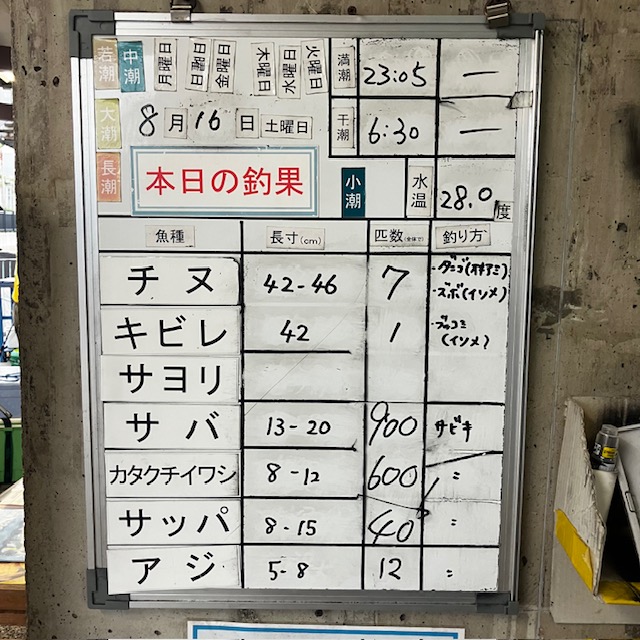 若潮 中潮 月曜日 日曜日 金曜日 木曜日 水曜日 火曜日 満潮 23:05 ー
大潮 8月16日 土曜日 干潮 6:30 ー
長潮 本日の釣果 小潮 水温 28.0度
魚種 長寸(cm) 匹数(全体で) 釣り方
チヌ 42-46 7 ・ダンゴ(オキアミ)
・ズボ(イソメ)
キビレ 42 1 ・ブッコミ
(イソメ)
サヨリ
サバ 13-20 900 サビキ
カタクチイワシ 8-12 600 〃
サッパ 8-15 40 〃
アジ 5-8 12 〃